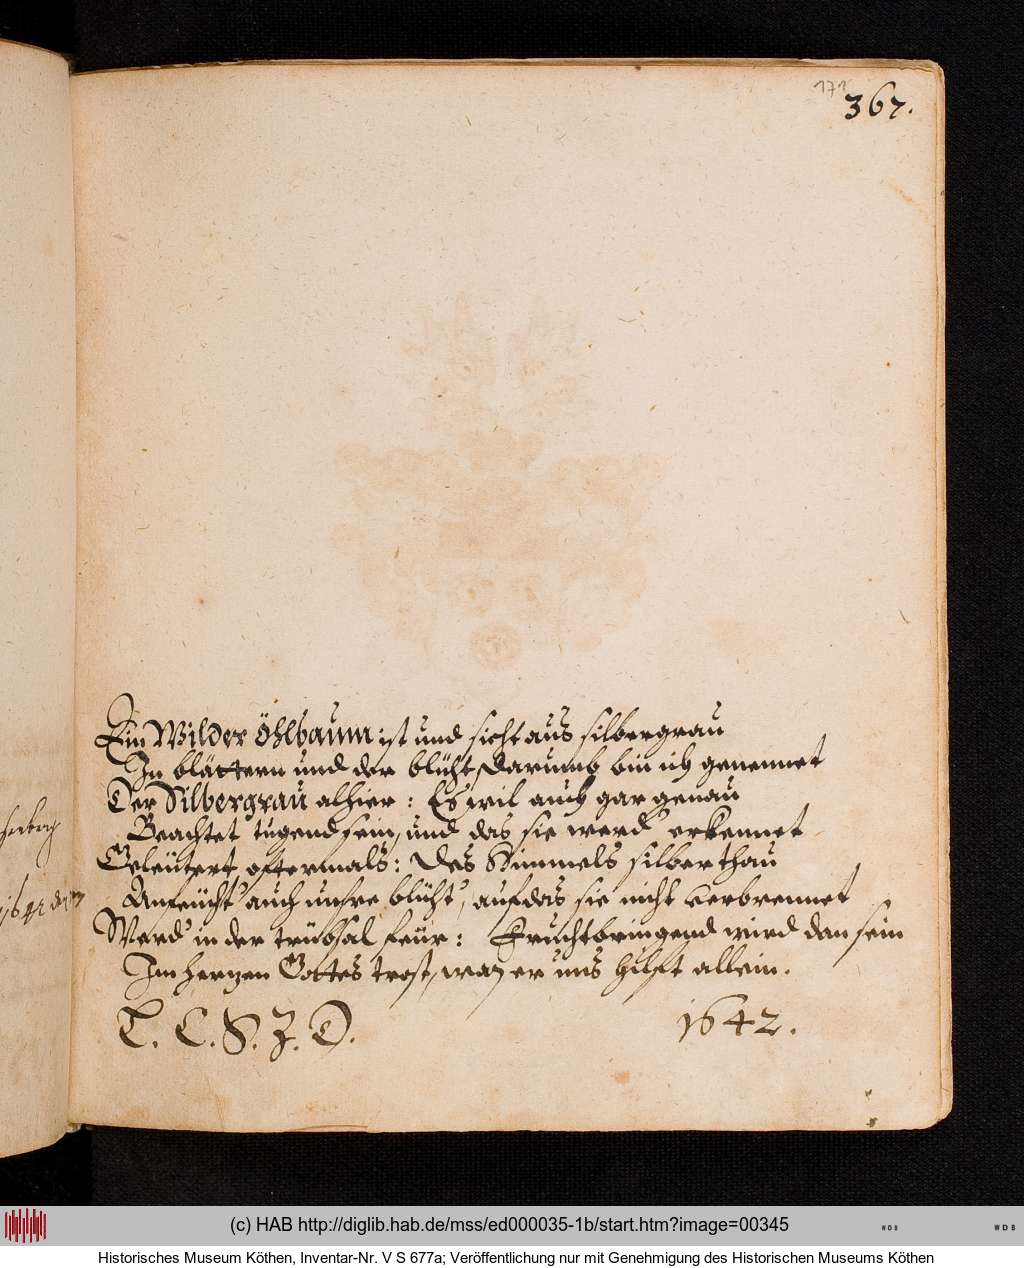 171
367.
Ein Wilder öhlbaum ist und sicht aus silbergrau
In blättern und der blüht, darumb bin ich genennet
Der Silbergrau alhier: Es wil auch gar genau
Beachtet tugend sein, und das sie werd' erkennet
Geleütert oftermals: Des Himmels silberthau
Anfeücht' auch unsre blüht', auf das sie nicht verbrennet
Werd' in der trübsal feür: Fruchtbringend wird dan sein
Im hertzen Gottes trost, wan er uns hilft allein.
C. S. Z. D.
1642.
(c) HAB http://diglib.hab.de/mss/ed000035-1b/start.htm?image=00345
WDB
WDB
Historisches Museum Köthen, Inventar-Nr. V S 677a; Veröffentlichung nur mit Genehmigung des Historischen Museums Köthen